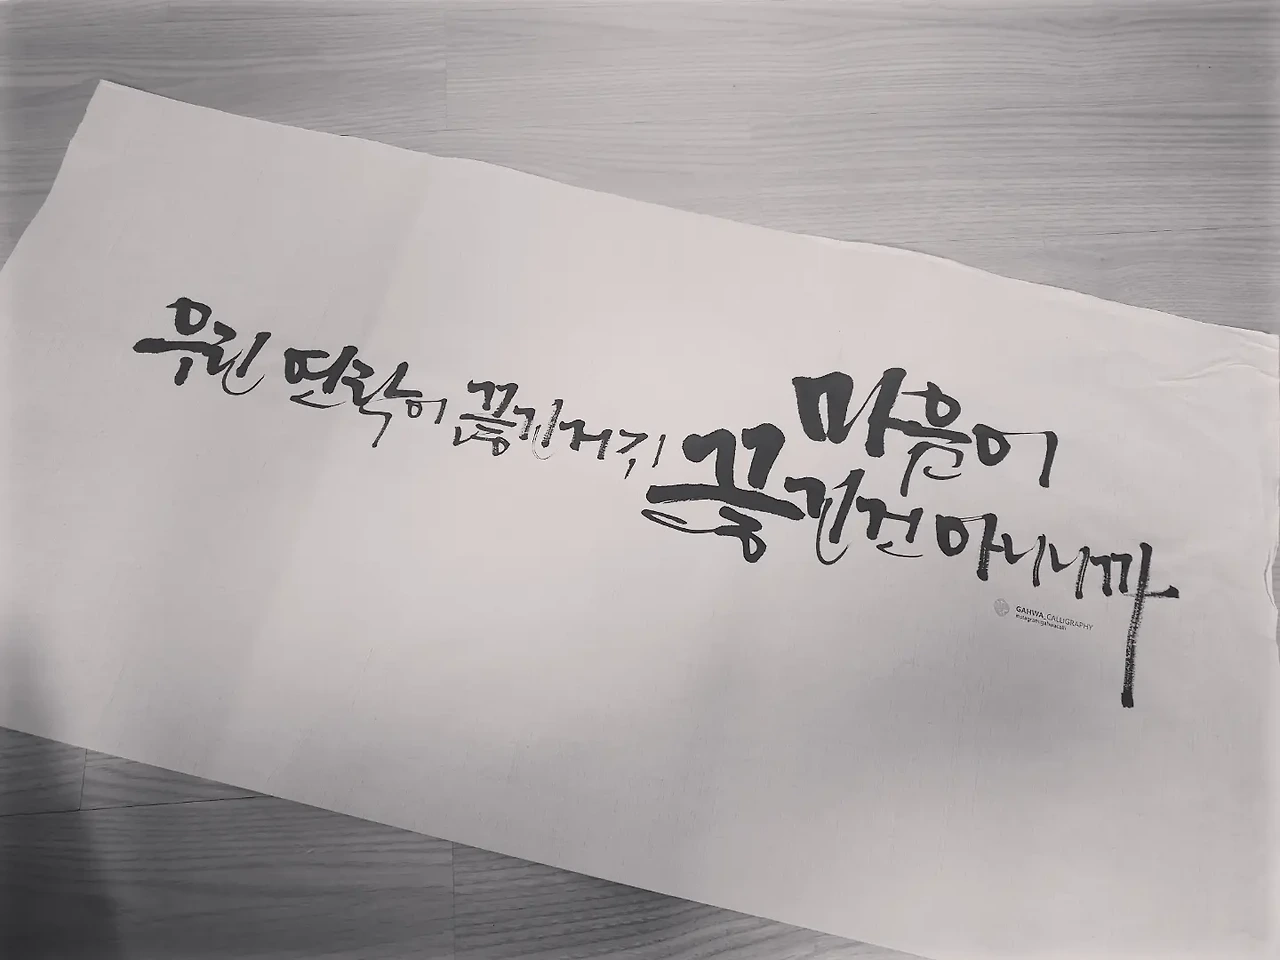 우린 연락이 끊긴거지
마음이
끊긴건 아니니까
GAHWA_CALLIGRAPHY